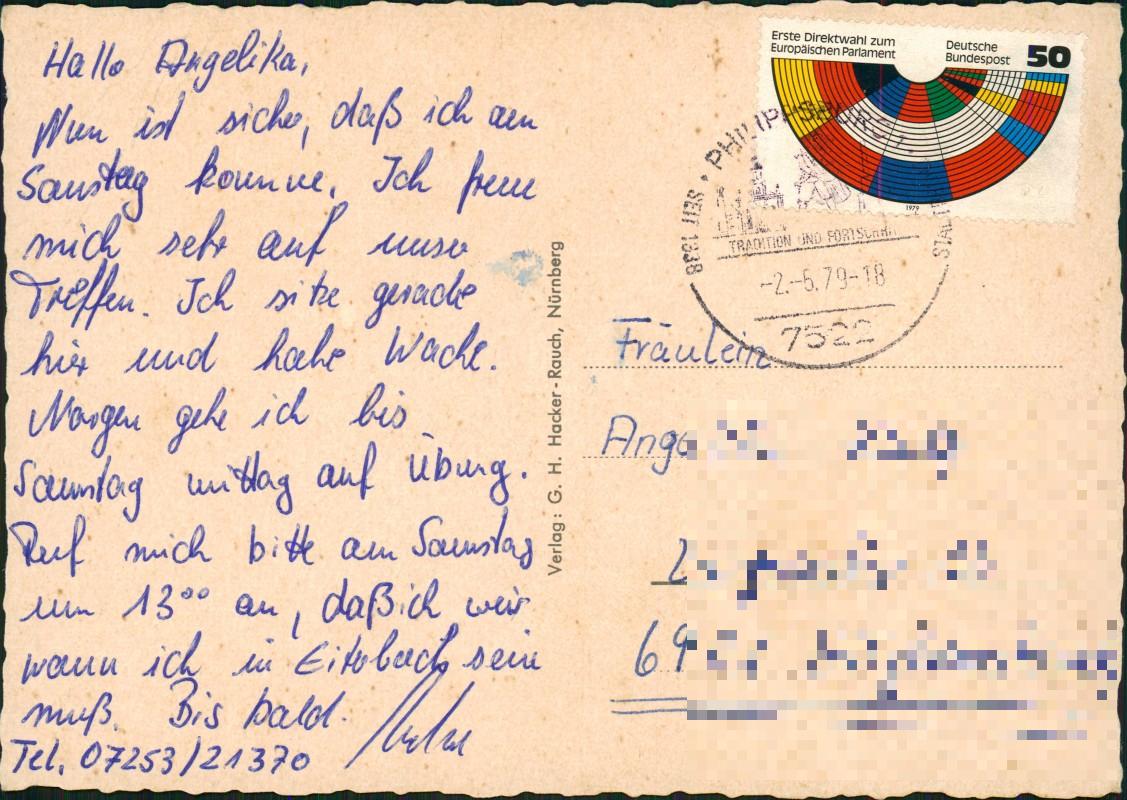 Hallo Angelika,
Nun ist sicher, daß ich am
Samstag komme. Ich freue
mich sehr auf unser
Treffen. Ich sitze gerade
hier und habe Wache.
Morgen gehe ich bis
Samstag mittag auf Übung.
Ruf mich bitte am Samstag
um 13°° an, daß ich weis
wann ich in Eiterbach sein
muß. Bis bald.
Tel. 07253/21370
Verlag: G. H. Hacker-Rauch, Nürnberg
Erste Direktwahl zum
Europäischen Parlament
Deutsche
Bundespost
50
1979
PHILIPPSBURG
SEIT 1338
STADT
TRADITION UND FORTSCHRITT
-2.-6.79-18
7522
Fräulein
69